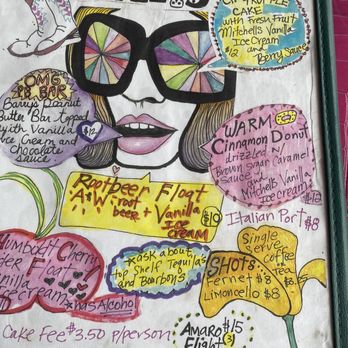 CAKE
with Fresh Fruit
Mitchells Vanilla
Ice Cream
$12 and
Berry Sauce
OMG
PB BAR
Barrys Peanut
Butter Bar topped
with Vanilla
Ice Cream and
chocolate
sauce
$12
WARM
Cinnamon Donut
drizzled w/
Brown sugar Caramel
Sauce
and
Mitchells Vanilla
Ice Cream
Rootbeer Float
A+W root
beer + Vanilla
Ice
cream
$10
Italian Port $8
Cherry
Float
Vanilla
Ice cream
*has Alcohol
*ask about
top shelf Tequilas
and Bourbons
Single
serve
coffee
Tea
SHOTS
Fernet $8
Limoncello $8
Cake Fee $3.50 p/person
AMARO $15
Flight